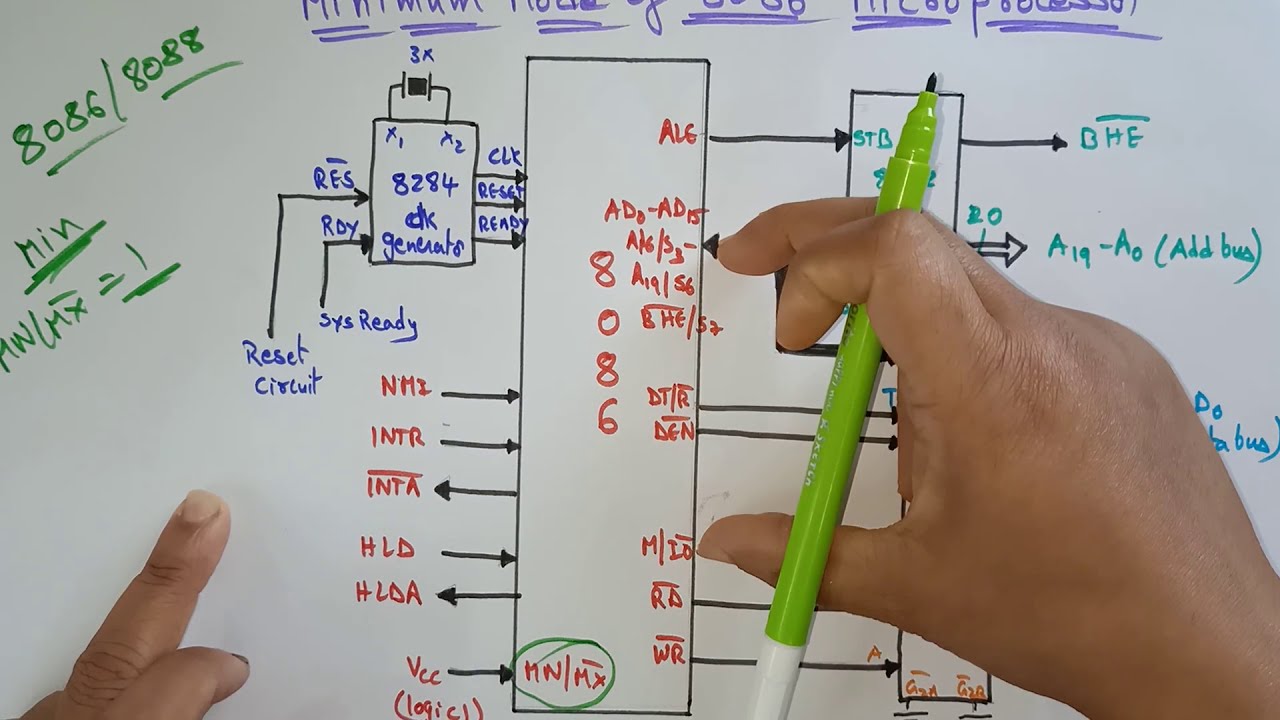 Minimum Mode of 8086 Microprocessor
8086/8088
Min
MN/M̅X̅ = 1
3x
X1 X2
8284
clk
generator
R̅E̅S̅
RDY
CLK
RESET
READY
Reset
Circuit
Sys Ready
NMI
INTR
I̅N̅T̅A̅
HLD
HLDA
Vcc
(logic1)
MN/M̅X̅
8
0
8
6
ALE
AD0-AD15
A16/S3-
A19/S6
B̅H̅E̅/S7
DT/R̅
D̅E̅N̅
M/I̅O̅
R̅D̅
W̅R̅
STB
B̅H̅E̅
20
A19-A0 (Add bus)
T
D0
A
G̅2A G̅2B